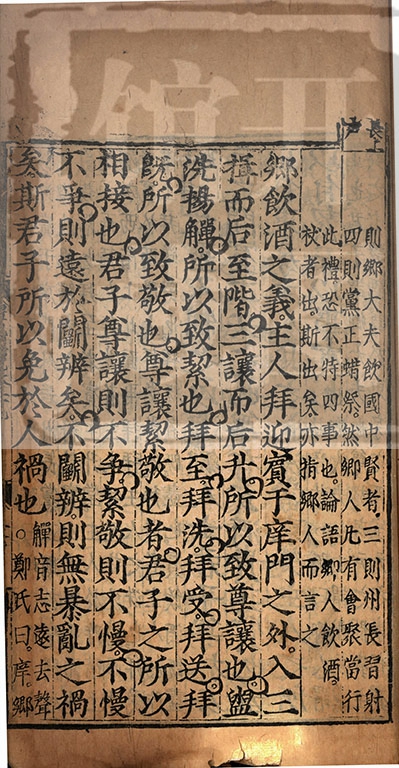 長上
則鄉大夫飲國中賢者三則州長習射
四則黨正蜡祭然鄉人凡有會聚當行
此禮恐不特四事也論語鄉人飲酒
杖者出斯出矣亦指鄉人而言之
鄉飲酒之義主人拜迎賓于庠門之外入三
揖而后至階三讓而后升所以致尊讓也盥
洗揚觶所以致絜也拜至拜洗拜受拜送拜
既所以致敬也尊讓絜敬也者君子之所以
相接也君子尊讓則不爭絜敬則不慢不慢
不爭則遠於鬬辨矣不鬬辨則無暴亂之禍
矣斯君子所以免於人禍也
觶音志遠去聲
鄭氏曰庠鄉